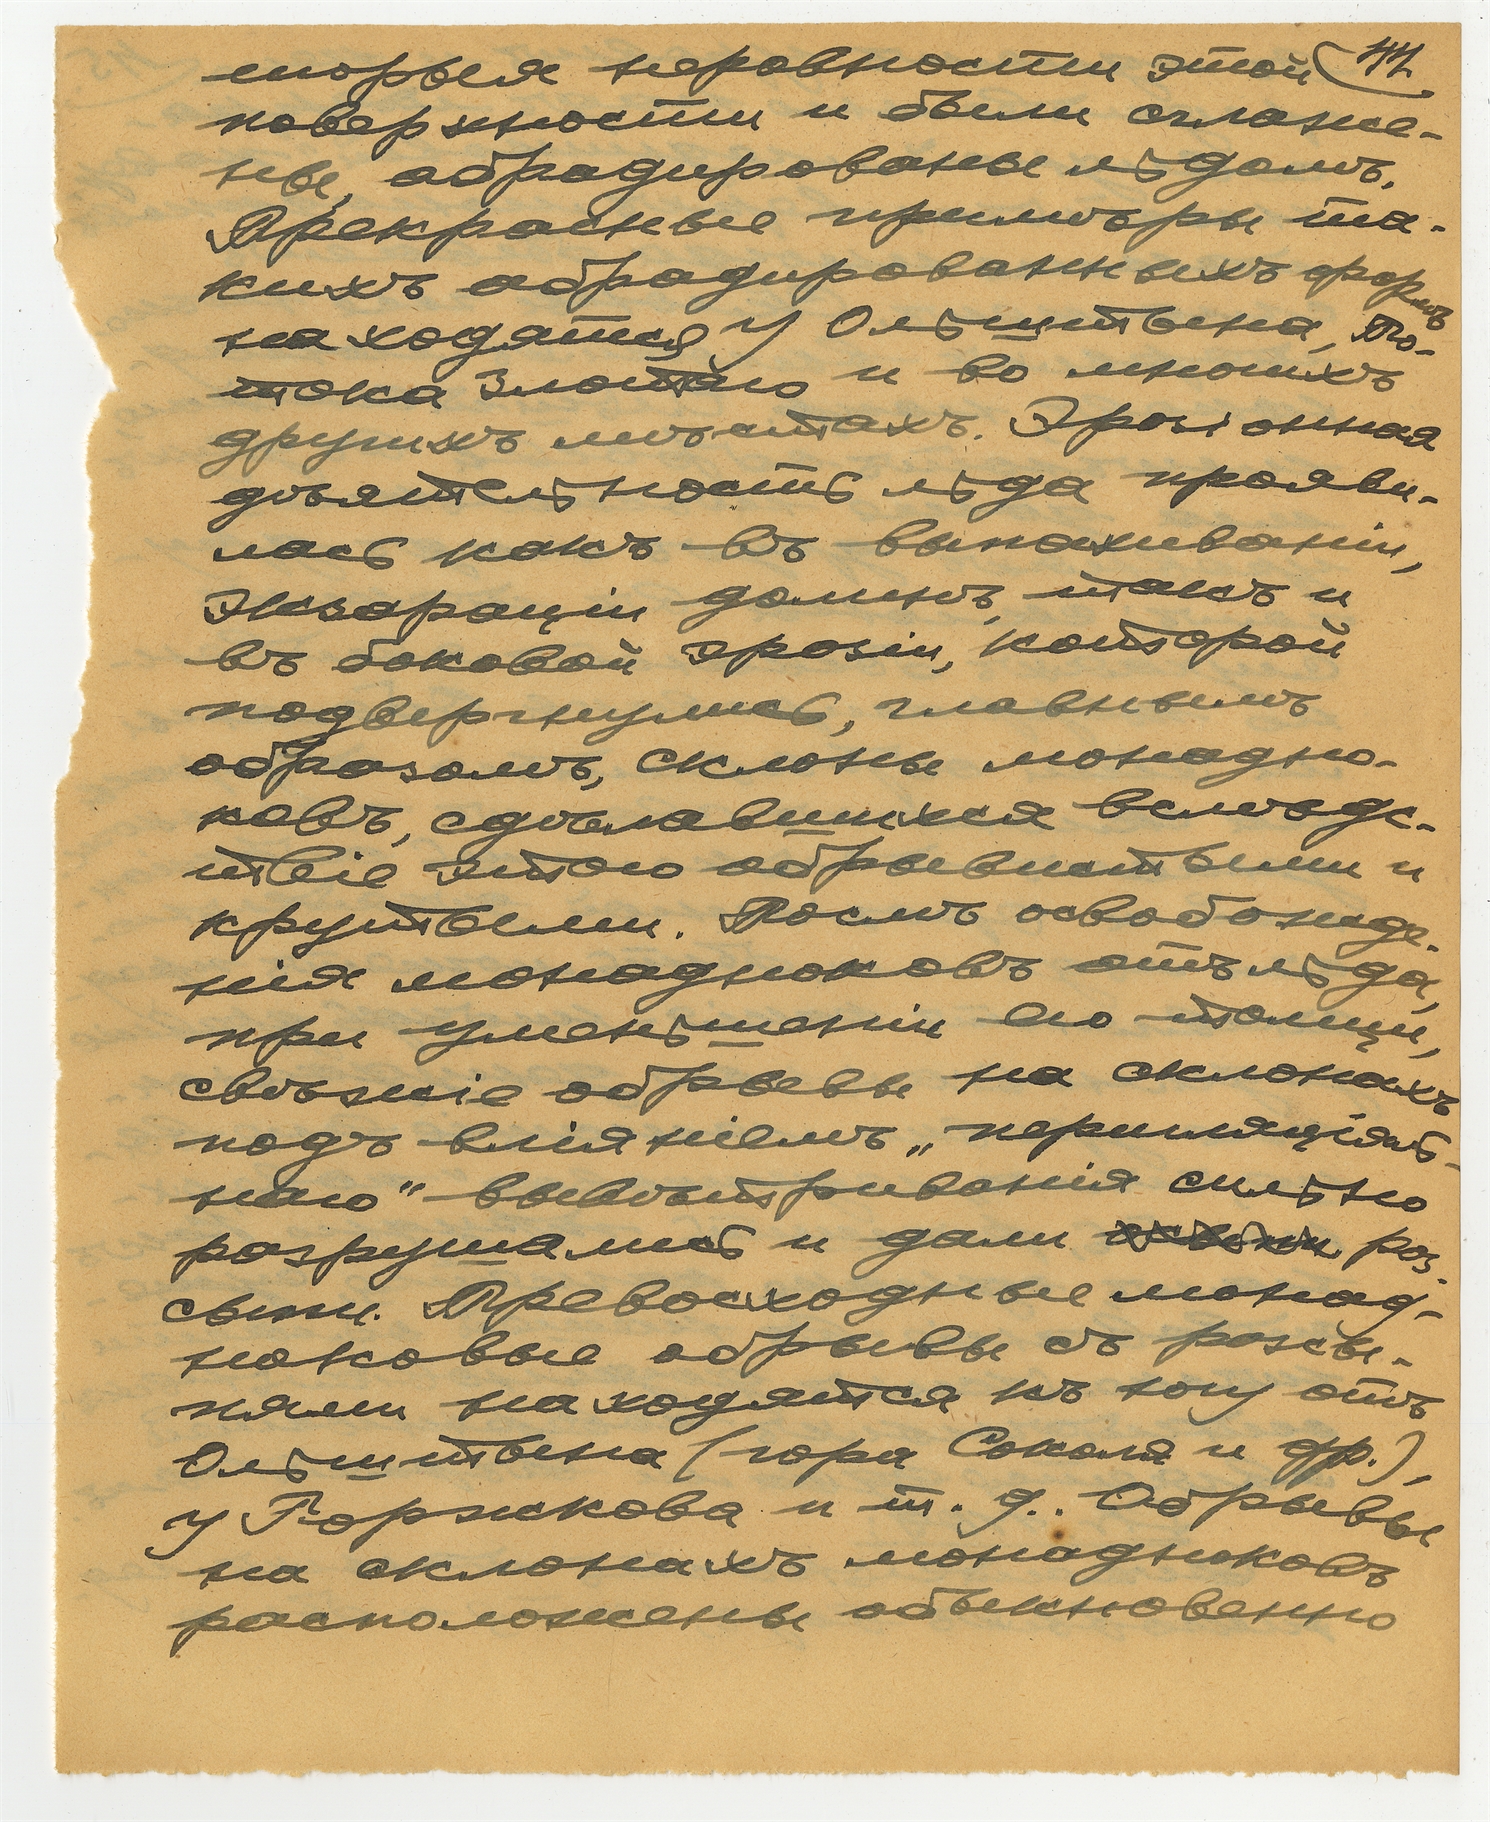 торыя неровности этой 44
поверхности и были сглаже-
ны, абрадированы льдомъ.
Прекрасные примѣры та-
кихъ абрадированныхъ формъ
находятся у Ольштына, По-
тока Злотаго и во многихъ
другихъ мѣстахъ. Эрозіонная
дѣятельность льда прояви-
лась какъ въ выпахиваніи,
экзараціи долинъ, такъ и
въ боковой эрозіи, которой
подвергнулись, главнымъ
образомъ, склоны монадно-
ковъ, сдѣлавшихся вслѣдс-
твіе этого обрывистыми и
крутыми. Послѣ освобожде-
нія монадноковъ отъ льда,
при уменьшеніи его толщи,
свѣжіе обрывы на склонахъ
подъ вліяніемъ „перигляціаль-
наго" вывѣтриванія сильно
разрушались и дали роз-
сыпи. Превосходные монад-
ноковые обрывы съ розсы-
пями находятся къ югу отъ
Ольштына (гора Сокола и др.),
у Горжкова и т. д.. Обрывы
на склонахъ монадноковъ
расположены обыкновенно